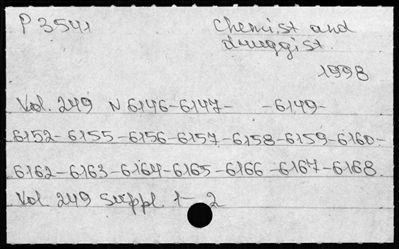 P 3541 Chemist and
druggist.
1998
Vol. 249 N 6146-6147- -6149-
6152-6155-6156-6157-6158-6159-6160-
6162-6163-6164-6165-6166-6167-6168
Vol 249 suppl. 1-2